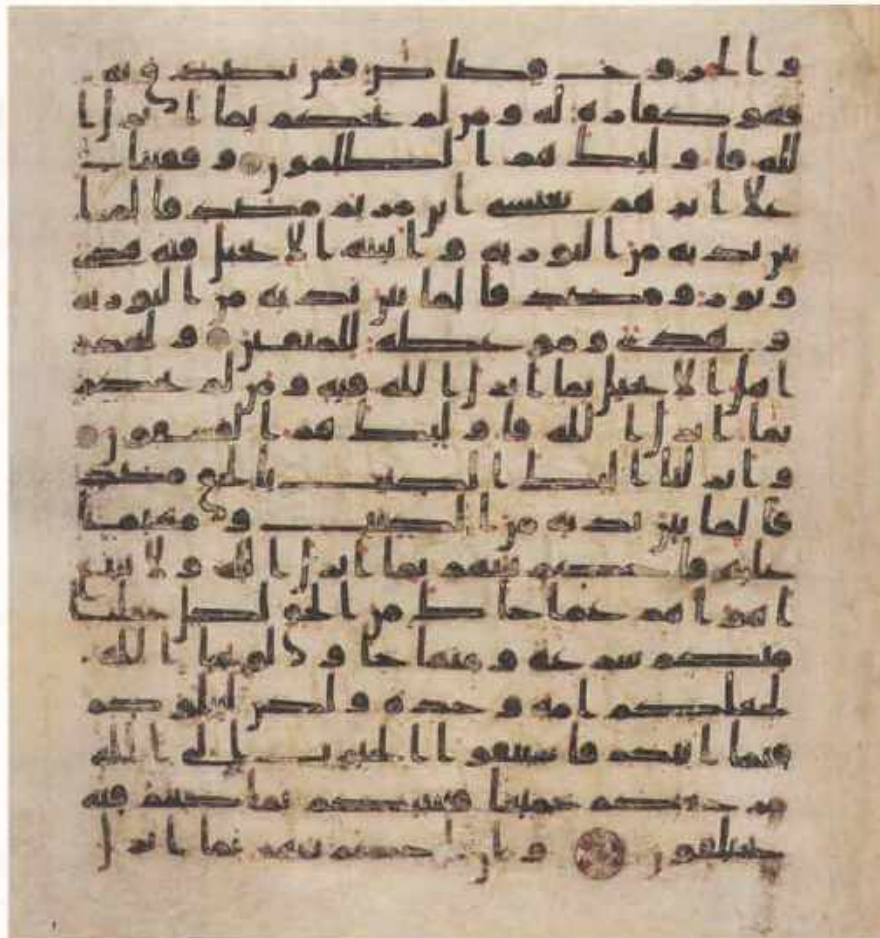 و الجروح قصاص فمن تصدق به
فهو كفارة له و من لم يحكم بما انزل ا
لله فاولئك هم ا لظلمون و قفينا
على اثرهم بعيسى ابن مريم مصدقا لما
بين يديه من التورية و اتينه الانجيل فيه هدى
و نور و مصدقا لما بين يديه من التورية
و هدى و موعظة للمتقين و ليحكم
اهل الانجيل بما انزل الله فيه و من لم يحكم
بما انزل الله فاولئك هم الفسقون
و انزلنا اليك الكتب بالحق مصد
قا لما بين يديه من الكتب و مهيمنا
عليه فاحكم بينهم بما انزل الله و لا تتبع
اهواهم عما جاك من الحق لكل جعلنا
منكم شرعة و منهاجا و لو شا الله
لجعلكم امة وحدة و لكن ليبلوكم
فيما اتيكم فاستبقوا الخيرت الى الله
مرجعكم جميعا فينبئكم بما كنتم فيه
تختلفون و ان احكم بينهم بما انزل